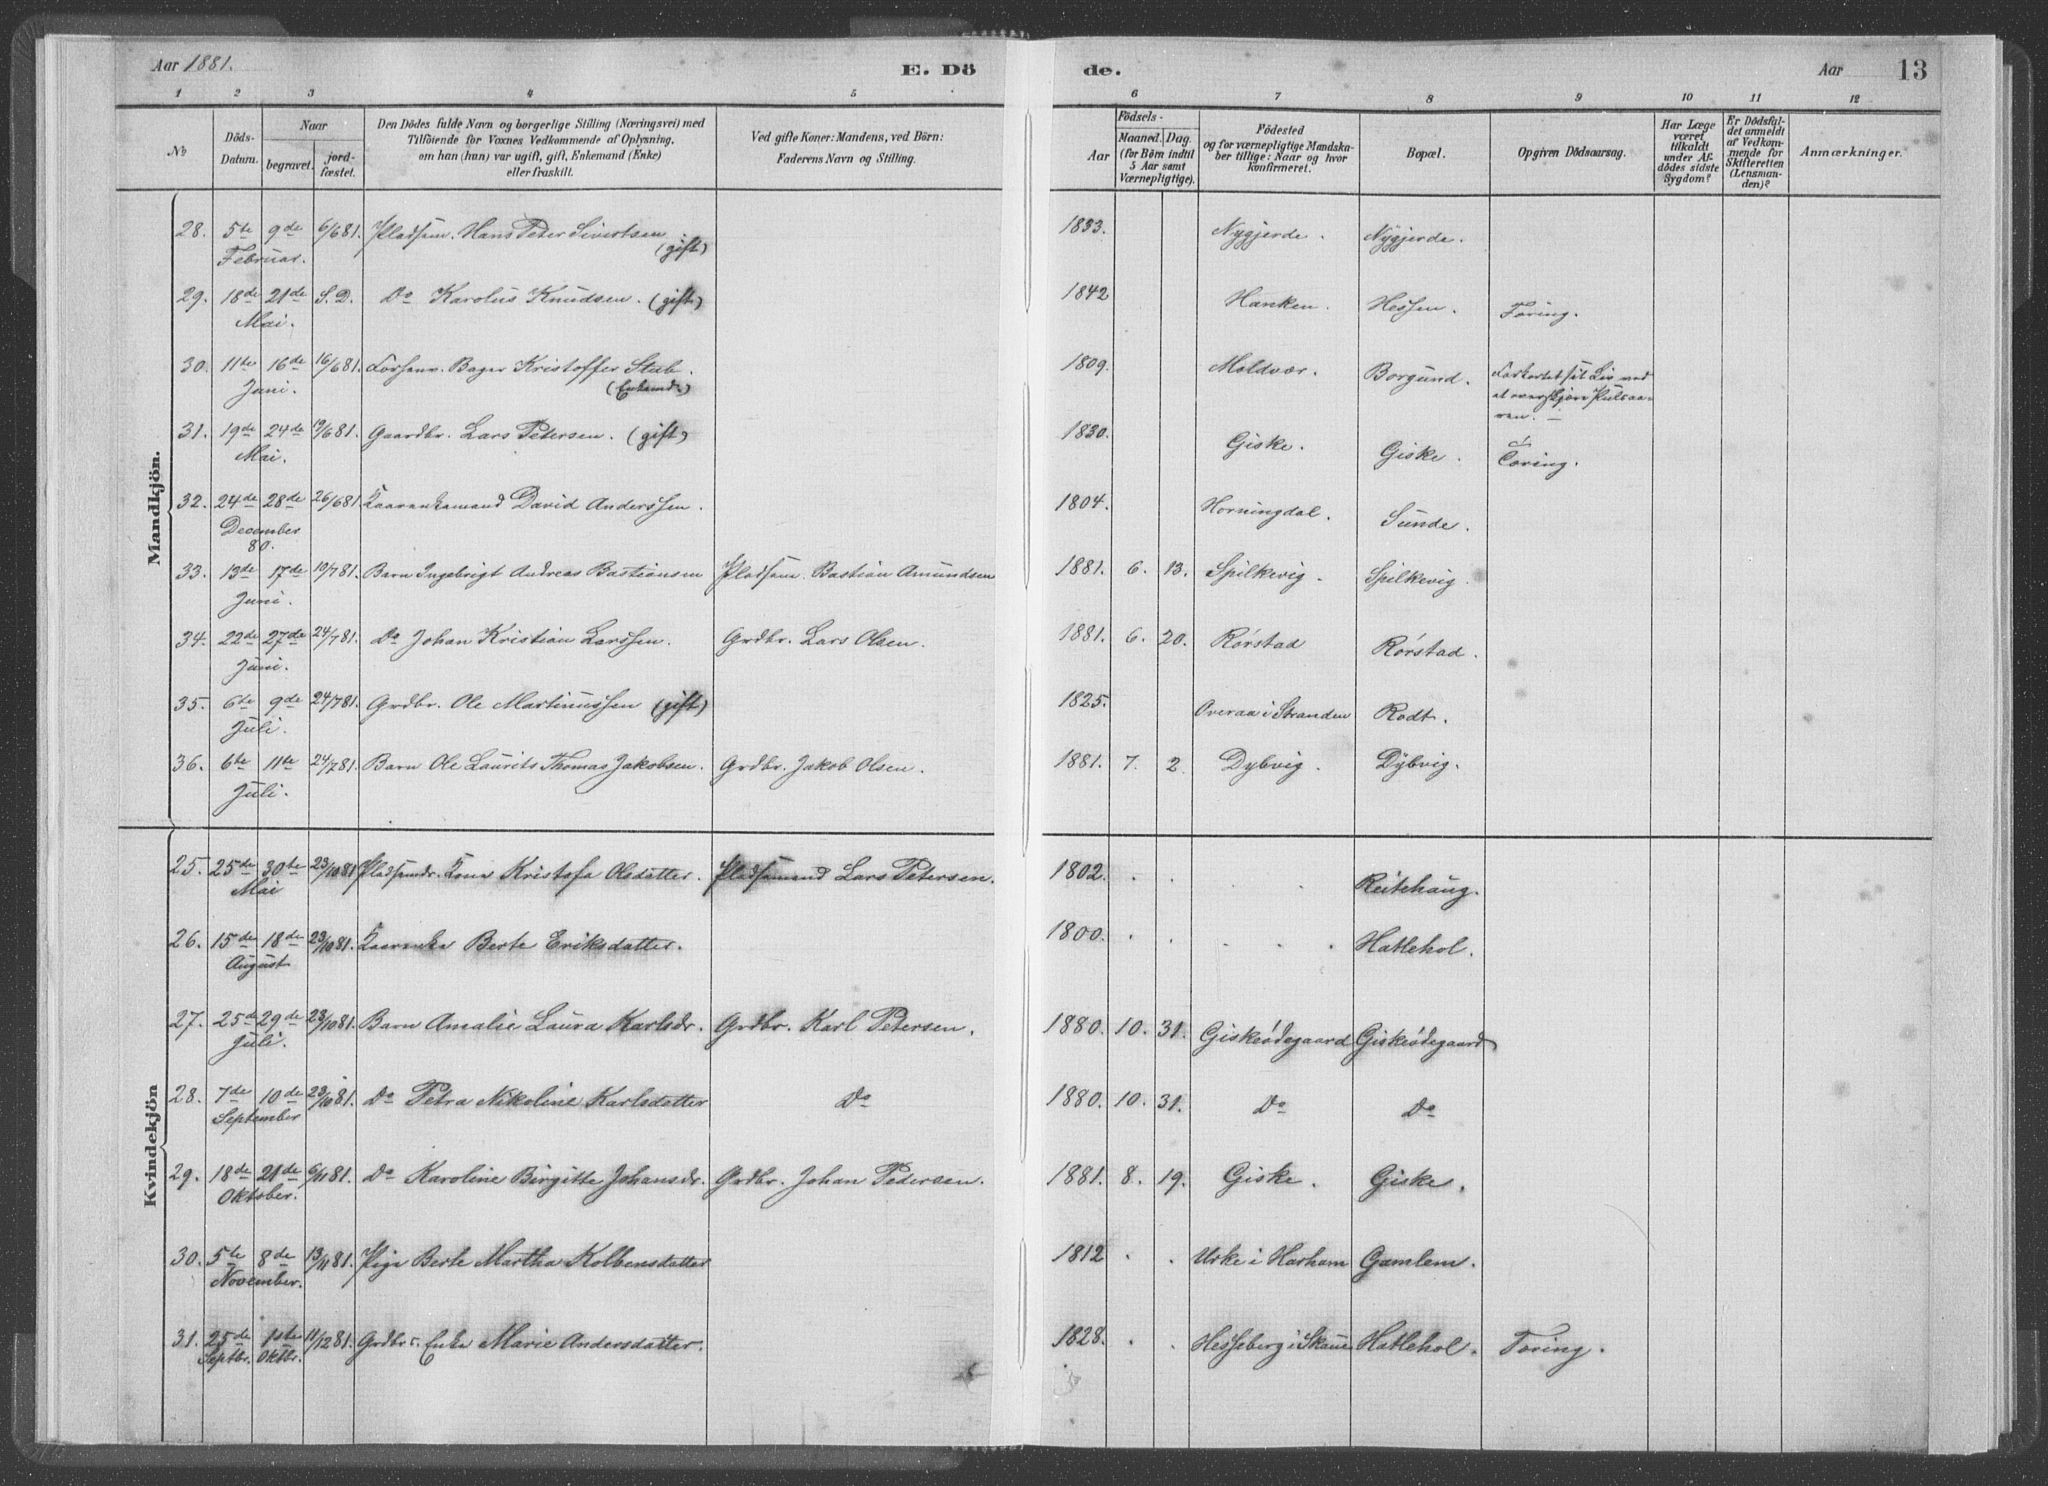 Aar 1881.
E. Dö
de.
Aar
13
1 2 3 4 5 6 7 8 9 10 11 12
No
Döds-Datum.
Naar
begravet.
jord-fæstet.
Den Dödes fulde Navn og borgerlige Stilling (Næringsvei) med
Tilföiende for Voxnes Vedkommende af Oplysning,
om han (hun) var ugift, gift, Enkemand (Enke)
eller fraskilt.
Ved gifte Koner: Mandens, ved Börn:
Faderens Navn og Stilling.
Födsels-
Aar
Maaned. Dag
(for Börn indtil
5 Aar samt
Værnepligtige).
Födested
og for værnepligtige Mandska-
ber tillige: Naar og hvor
konfirmeret.
Bopæl.
Opgiven Dödsaarsag.
Har Læge
været
tilkaldt
under Af-
dödes sidste
Sygdom?
Er Dödsfal-
det anmeldt
af Vedkom-
mende for
Skifteretten
(Lensman-
den)?
Anmærkninger.
Mandkjön.
28. 5te Februar. 9de 6/6 81. Pladsm. Hans Peter Sivertsen (gift) 1833. Nygjerde. Nygjerde.
29. 18de Mai. 21de S. D. Do Karolus Knudsen. (gift) 1842 Hanken. Hessen. Tæring.
30. 11te Juni. 16de 16/6 81. Forhenv. Bager Kristoffer Stub. (Enkemd.) 1809. Moldvær. Borgund. Forkortet sit Liv ved
at overskjære Pulsaa-
ren.
31. 19de Mai. 24de 19/6 81. Gaardbr. Lars Petersen. (gift) 1830. Giske. Giske. Tæring.
32. 24de December 80. 28de 26/6 81. Kaarenkemand David Anderssen. 1804. Horningdal. Sunde.
33. 13de Juni. 17de 10/7 81. Barn Ingebrigt Andreas Bastiansen Pladsm. Bastian Amundsen 1881. 6. 13. Spilkevig. Spilkevig.
34. 22de Juni. 27de 24/7 81. Do Johan Kristian Larssen. Grdbr. Lars Olsen. 1881. 6. 20. Rørstad Rørstad.
35. 6te Juli. 9de 24/7 81. Grdbr. Ole Martinussen (gift) 1825. Overaa i Stranden Rodt.
36. 6te Juli. 11te 24/7 81. Barn Ole Laurits Thomas Jakobsen. Grdbr. Jakob Olsen. 1881. 7. 2. Dybvig. Dybvig.
Kvindekjön
25. 25de Mai 30te 23/10 81 Kone Kristofa Olsdatter. Pladsmand Lars Petersen. 1802. Reitehaug.
26. 15de August 18de 23/10 81. Kaarenke Berte Eriksdatter. 1800. Hatlehol.
27. 25de Juli. 29de 23/10 81. Barn Amalie Laura Karlsdr. Grdbr. Karl Petersen. 1880. 10. 31. Giskeødegaard Giskeødegaard
28. 7de September 10de 23/10 81. Do Petra Nikoline Karlsdatter Do 1880. 10. 31. Do Do
29. 18de Oktober. 21de 6/11 81. Do Karoline Birgitte Johansdr. Grdbr. Johan Pedersen. 1881. 8. 19. Giske. Giske.
30. 5te November. 8de 13/11 81. Pige Berte Martha Kolbensdatter 1812 Urke i Harham Gamlem.
31. 25de Septbr. 1ste Oktbr. 11/12 81. Grdbr. Enke Marie Andersdatter. 1828. Hesseberg i Skaue Hatlehol. Tæring.